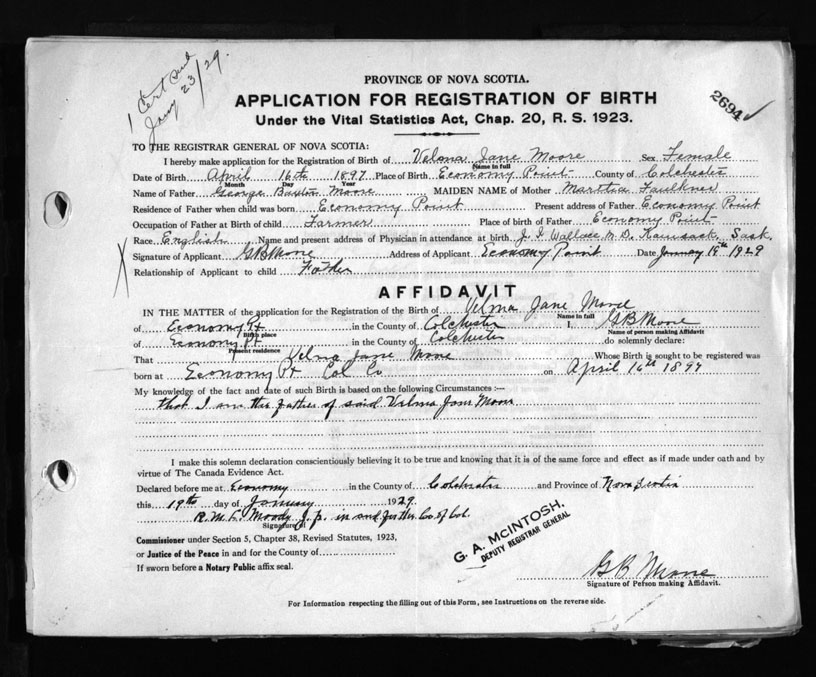 1 Cert Jany 23/29.
PROVINCE OF NOVA SCOTIA.
2694
APPLICATION FOR REGISTRATION OF BIRTH
Under the Vital Statistics Act, Chap. 20, R. S. 1923.
TO THE REGISTRAR GENERAL OF NOVA SCOTIA:
I hereby make application for the Registration of Birth of Velma Jane Moore Sex Female
Name in full
Date of Birth April 16th 1897 Place of Birth Economy Point County of Colchester
Month Day Year
Name of Father George Baxter Moore MAIDEN NAME of Mother Martha Faulkner
Residence of Father when child was born Economy Point Present address of Father Economy Point
Occupation of Father at Birth of child Farmer Place of birth of Father Economy Point
Race English Name and present address of Physician in attendance at birth J. I. Wallace M. D. Kamsack, Sask.
Signature of Applicant G B Moore Address of Applicant Economy Point Date January 19th 1929
Relationship of Applicant to child Father
X
AFFIDAVIT
IN THE MATTER of the application for the Registration of the Birth of Velma Jane Moore
Name in full
of Economy Pt in the County of Colchester I, G B Moore
Birth place Name of person making Affidavit
of Economy Pt. in the County of Colchester do solemnly declare:
Present residence
That Velma Jane Moore Whose Birth is sought to be registered was
born at Economy Pt Col Co on April 16th 1897
My knowledge of the fact and date of such Birth is based on the following Circumstances :—
that I am the father of said Velma Jane Moore
I make this solemn declaration conscientiously believing it to be true and knowing that it is of the same force and effect as if made under oath and by
virtue of The Canada Evidence Act.
Declared before me at Economy in the County of Colchester and Province of Nova Scotia
this 19th day of January 1929.
R. M. C. Moody J. p. in and for the Co. of Col.
Signature of
Commissioner under Section 5, Chapter 38, Revised Statutes, 1923,
or Justice of the Peace in and for the County of
If sworn before a Notary Public affix seal.
G. A. McINTOSH,
DEPUTY REGISTRAR GENERAL
G B Moore
Signature of Person making Affidavit.
For Information respecting the filling out of this Form, see Instructions on the reverse side.